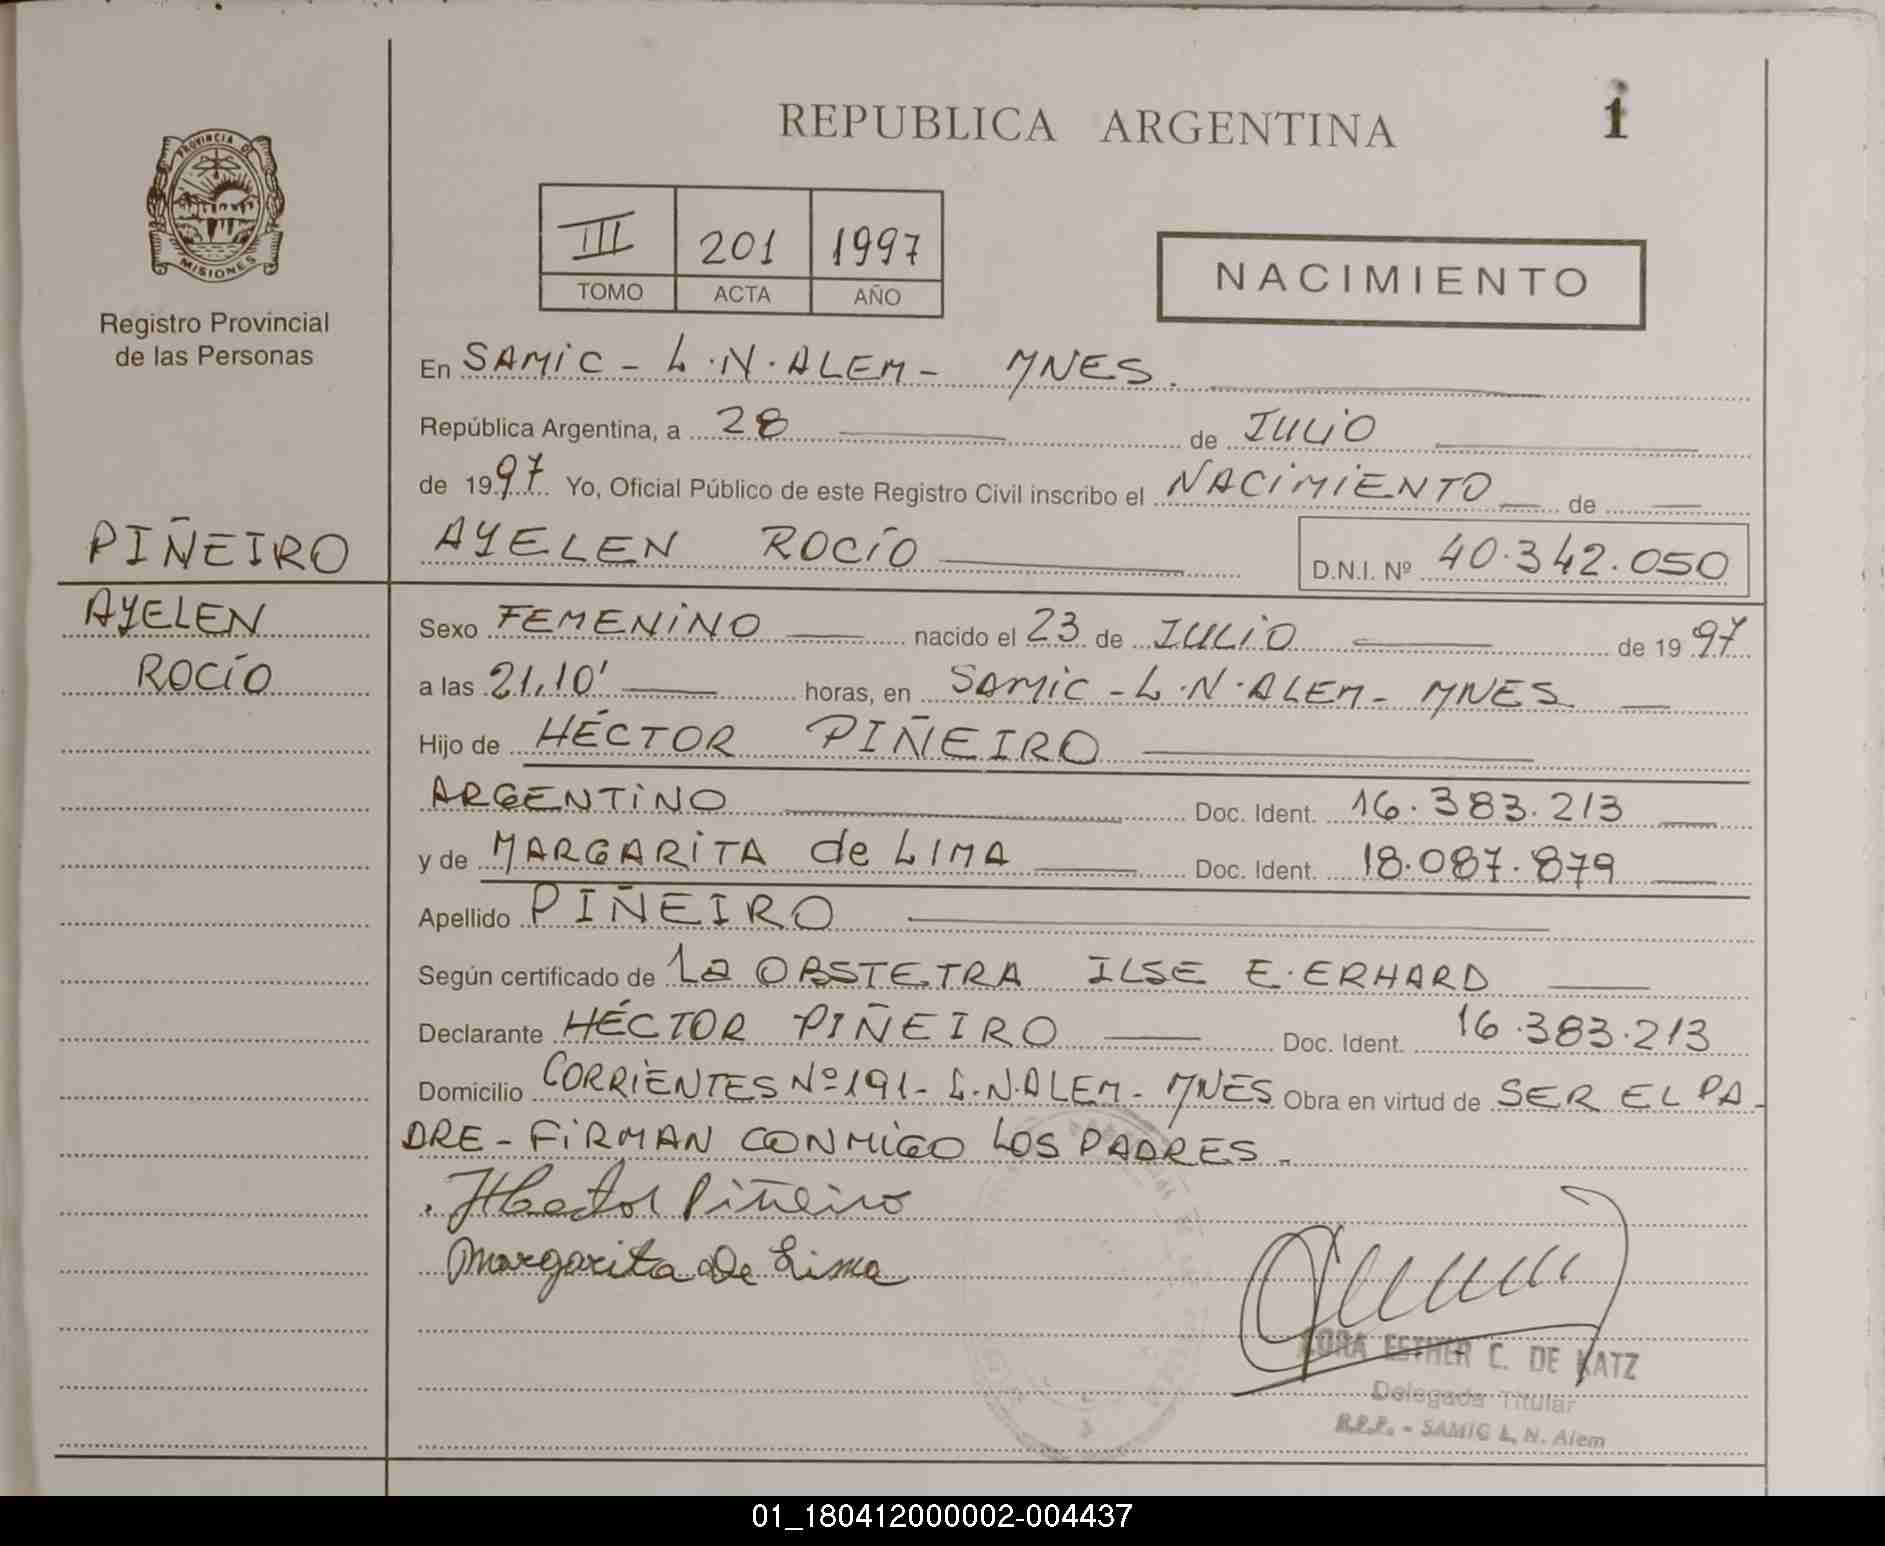 REPUBLICA ARGENTINA
1
PROVINCIA DE
MISIONES
Registro Provincial
de las Personas
III 201 1997
TOMO ACTA AÑO
NACIMIENTO
En SAMIC - L.N.ALEM - MNES.
República Argentina, a 28 de JULIO
de 1997 Yo, Oficial Público de este Registro Civil inscribo el NACIMIENTO de
PIÑEIRO
AYELEN ROCÍO D.N.I. Nº 40.342.050
AYELEN
ROCÍO
Sexo FEMENINO nacido el 23 de JULIO de 1997
a las 21,10' horas, en SAMIC - L.N.ALEM - MNES
Hijo de HÉCTOR PIÑEIRO
ARGENTINO Doc. Ident. 16.383.213
y de MARGARITA de LIMA Doc. Ident. 18.087.879
Apellido PIÑEIRO
Según certificado de La OBSTETRA ILSE E. ERHARD
Declarante HÉCTOR PIÑEIRO Doc. Ident. 16.383.213
Domicilio CORRIENTES Nº 191 - L.N.ALEM - MNES Obra en virtud de SER EL PA-
DRE - FIRMAN CONMIGO LOS PADRES.
Hector Piñeiro
Margarita De Lima
ESTHER C. DE KATZ
Delegada Titular
R.P.P. - SAMIC L. N. Alem
01_180412000002-004437